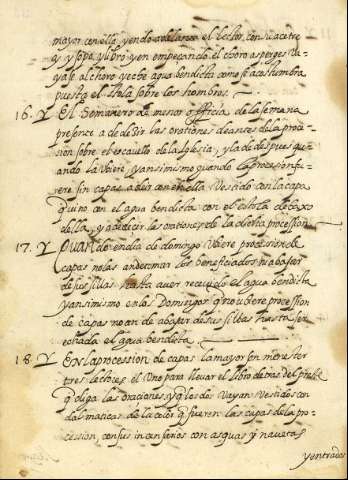 mayor con ella, yendo adelante el lector, con su acetre
y ysopo, y libro, y en empeçando el choro asperges va-
ya se al choro y eche agua bendicta como se acostumbra
puesta el stola sobre los hombros.
16. Y El Semanero de menor officio de la semana
presençe a de dezir las orationes de antes de la proces-
sion sobre el escavello de la Iglesia, y la de despues qu-
ando la Uviere, y ansimismo quando la procession fu-
ere sin capas a de ir con ella Vestido con la capa
q vino con el agua bendicta con el estola debaxo
della, y a dezir las orationes de la dicha procession
17. Y Quando en dia de domingo Uviere procession de
capas no las an de tomar los beneficiados ni abaxar
de sus sillas hasta aver recevido el agua bendicta
y ansimismo en los Domingos q no uviere procession
de capas no an de abaxar de sus sillas hasta ser
echada el agua bendicta
18. Y En la procession de capas la mayor son menester
tres lectores, el Uno para llevar el libro detras del preste
q diga las oraciones y los dos Vayan Vestidos con
dalmaticas de la color q fueren las capas de la pro-
cession, con sus incensarios con asquas y navetas
y entrados